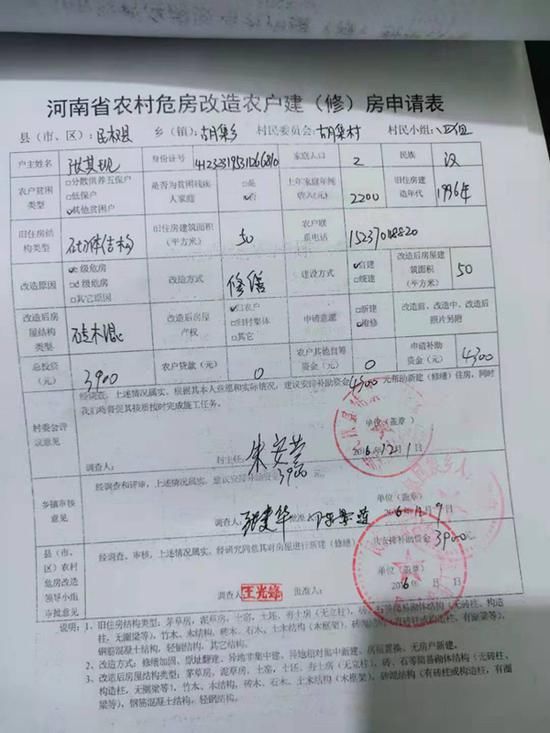 河南省农村危房改造农户建（修）房申请表
县（市、区）：民权县 乡（镇）：胡集乡 村民委员会：胡集村 村民小组：八组
户主姓名 身份证号 家庭人口 2 民族 汉
农户贫困类型 □分散供养五保户 □低保户 ☑其他贫困户 是否为贫困残疾人家庭 □是 ☑否 上年家庭年纯收入(元) 2200 旧住房建造年代 1996年
旧住房结构类型 砖木结构 旧住房建筑面积（平方米） 50 农户联系电话
改造原因 ☑c级危房 □d级危房 □其它原因 改造方式 修缮 建设方式 ☑自建 □统建 改造后房屋建筑面积（平方米） 50
改造后房屋结构类型 砖木混 改造后房屋产权 ☑归农户 □归村集体 □其它 申请意愿 □新建 ☑维修 改造前、改造中、改造后照片另附
总投资（元） 3900 农户贷款（元） 0 农户其他自筹资金（元） 0 申请补助资金（元） 4300
村委会评议意见 经调查，上述情况属实。根据其本人意愿和实际情况，建议安排补助资金4300元帮助新建（修缮）住房，同时我们将督促其按质按时完成施工任务。
单位（盖章）
调查人： 村主任： 朱安营 2016年12月1日
乡镇审核意见 经调查和评审，上述情况属实，建议安排补助资金3900元
单位（盖章）
调查人： 张建华 批准人：
县（市、区）农村危房改造领导小组审批意见 经调查、审核，上述情况属实，经研究同意其对房屋进行新建（修缮），共安排补助资金3900元
单位（盖章）
调查人： 王光峰 批准人： 2016年 月 日
说明：1、旧住房结构类型，茅草房，泥草房，土窑，土坯，夯土房（无立柱），砖、石等简易砌体结构（无砖柱，构造柱，无圈梁等），竹木、木结构，砖木、石木、土木结构（木框架），砖混结构（有砖柱或构造柱，有圈梁等），钢筋混凝土结构，轻钢结构，其它结构。
2、改造方式：修缮加固、原址翻建、异地非集中建、异地相对集中新建、房屋置换、无房户新建。
3、改造后房屋结构类型：茅草房，泥草房，土窑，土坯，夯土房（无立柱），砖、石等简易砌体结构（无砖柱，构造柱，无圈梁等），竹木、木结构，砖木、石木、土木结构（木框架），砖混结构（有砖柱或构造柱，有圈梁等），钢筋混凝土结构，轻钢结构。